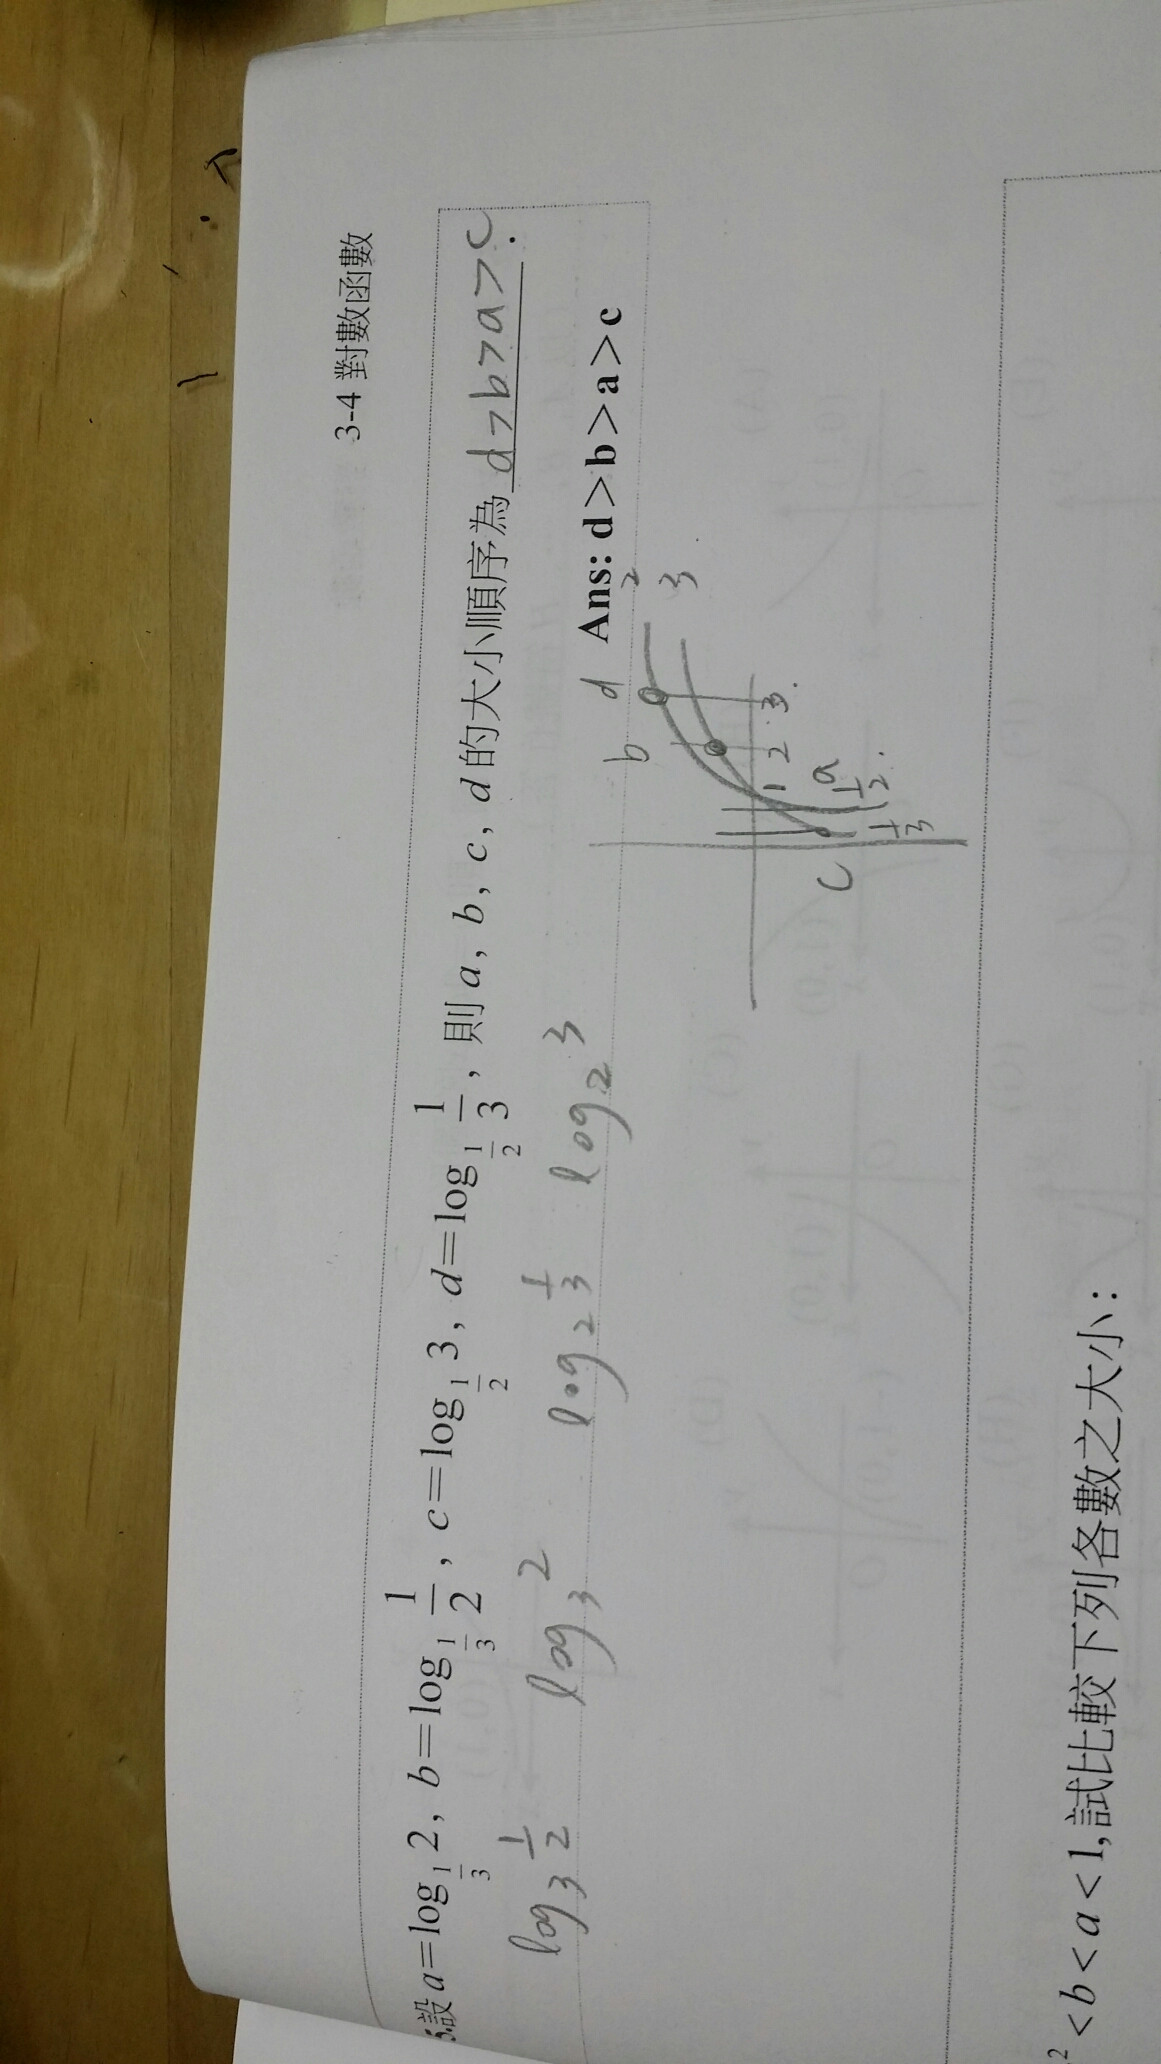 3-4 對數函數
設 a=log_{1/3} 2, b=log_{1/3} 1/2, c=log_{1/2} 3, d=log_{1/2} 1/3, 則 a, b, c, d 的大小順序為 d>b>a>c.
log_3 1/2 log_3 2 log_2 1/3 log_2 3
Ans: d>b>a>c
d 2
b 3
1 2 3
c a
1/3 1/2
2<b<a<1,試比較下列各數之大小: